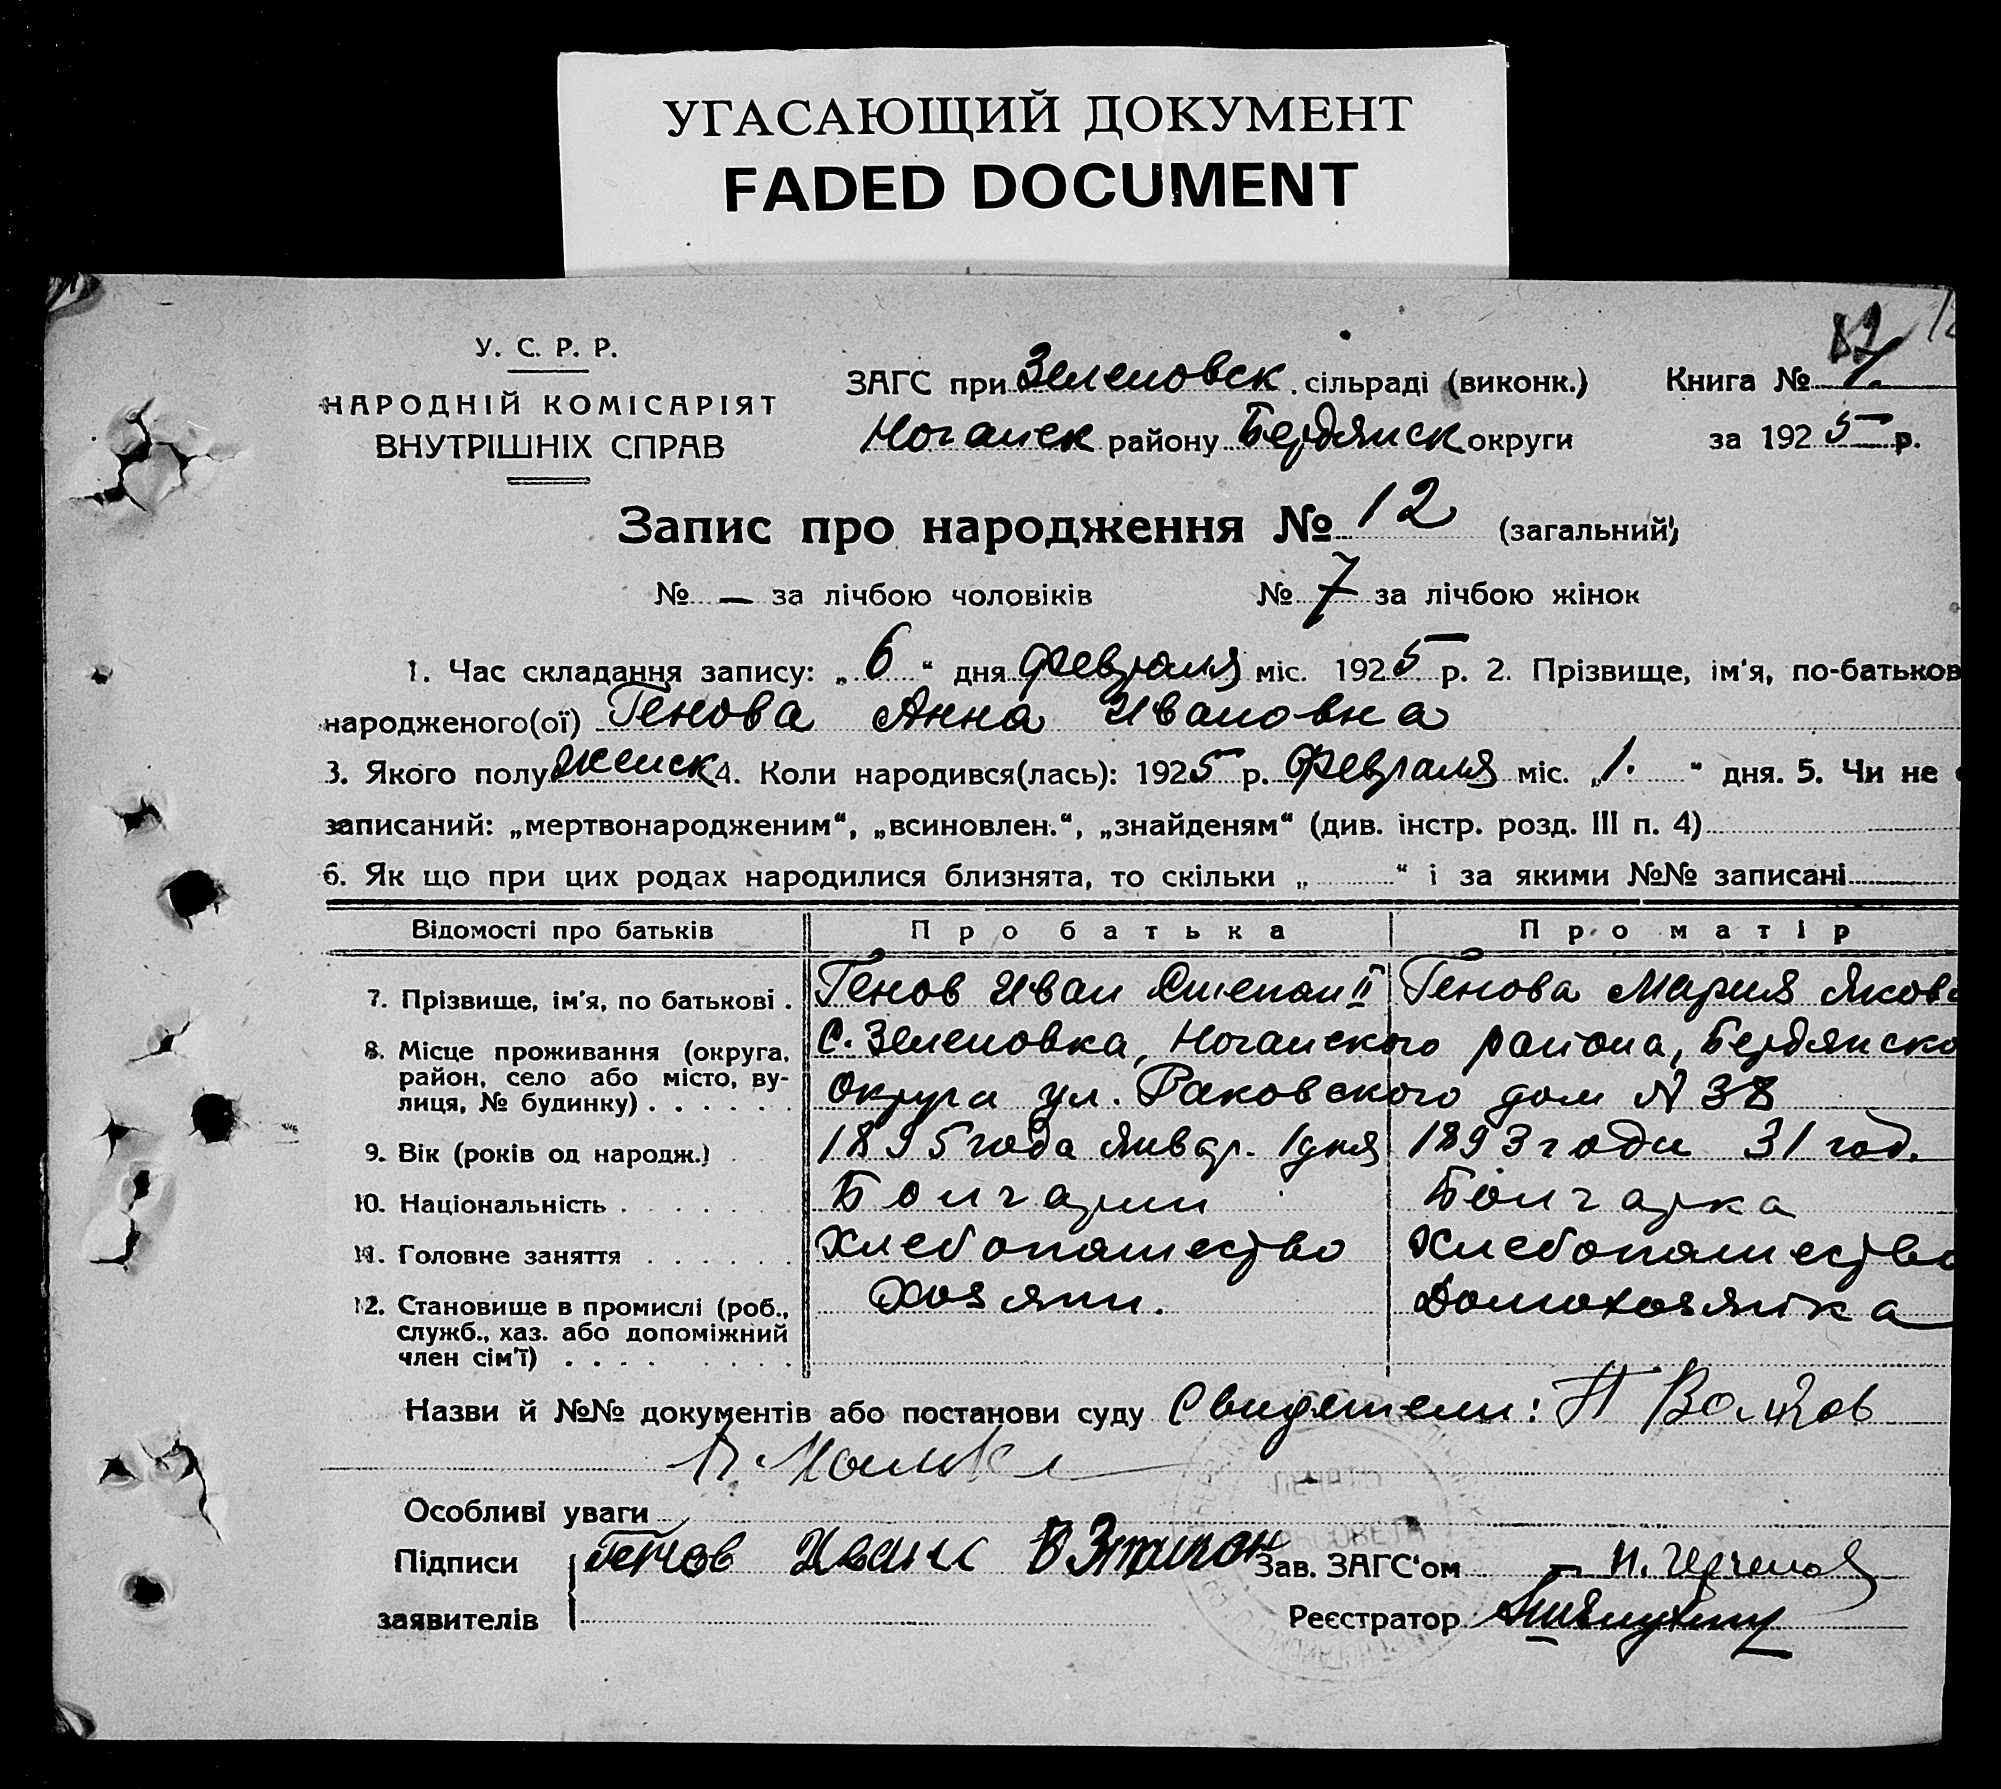 УГАСАЮЩИЙ ДОКУМЕНТ
FADED DOCUMENT
У. С. Р. Р.
НАРОДНІЙ КОМІСАРІЯТ
ВНУТРІШНІХ СПРАВ
ЗАГС при Зеленовск. сільраді (виконк.) Книга № 1.
Ногайск району Бердянск округи за 1925 р.
Запис про народження № 12 (загальний)
№ — за лічбою чоловіків № 7 за лічбою жінок
1. Час складання запису: „ 6 “ дня февраля міс. 1925 р. 2. Прізвище, ім'я, по-батьков
народженого(ої) Генова Анна Ивановна
3. Якого полу женск 4. Коли народився(лась): 1925 р. Февраля міс. „1. “ дня. 5. Чи не
записаний: „мертвонародженим“, „всиновлен.“, „знайденям“ (див. інстр. розд. III п. 4)
6. Як що при цих родах народилися близнята, то скільки „ “ і за якими №№ записані
Відомості про батьків Про батька Про матір
7. Прізвище, ім'я, по батькові . Генов Иван Степан II Генова Мария Яков
8. Місце проживання (округа, район, село або місто, ву-лиця, № будинку) . . . . . . С. Зеленовка, Ногайского района, Бердянско
Округа ул. Раковского дом N 38
9. Вік (років од народж.) 1895 года январ. 1 дня 1893 года 31 год.
10. Національність . . . . . . . Болгарин Болгарка
11. Головне заняття . . . . . . Хлебопашество Хлебопашество
12. Становище в промислі (роб., служб., хаз. або допоміжний член сім'ї) . . . . Хозяин. Домохозяйка
Назви й №№ документів або постанови суду Свидетели: П Волков
Особливі уваги
Підписи Генов Иван Зав. ЗАГС'ом
заявителів Реєстратор